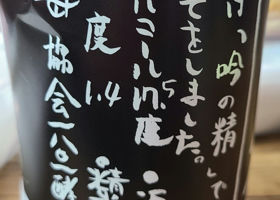 、吟の精」で
てをしました。
ルコール 度
度 1.4 ・精
母 協会一八〇一酵